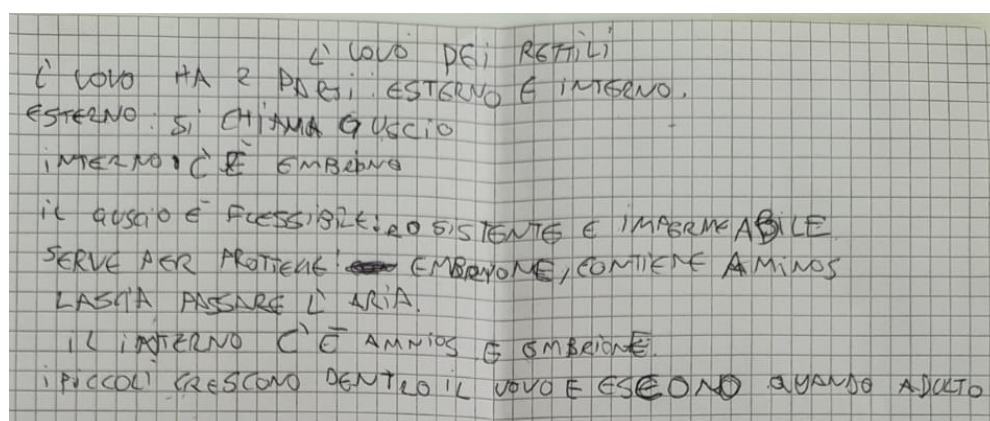 L' UOVO DEI RETTILI
L' UOVO HA 2 PARTI: ESTERNO E INTERNO.
ESTERNO: SI CHIAMA GUSCIO
INTERNO: C'È EMBRIONE
IL GUSCIO È FLESSIBILE: ROSISTENTE E IMPERMEABILE
SERVE PER PROTIEGE: EMBRYONE, CONTIENE AMINOS
LASCIA PASSARE L' ARIA.
IL INTERNO C'È AMNIOS E EMBRIONE.
I PICCOLI CRESCONO DENTRO IL UOVO E ESEONO QUANDO ADULTO